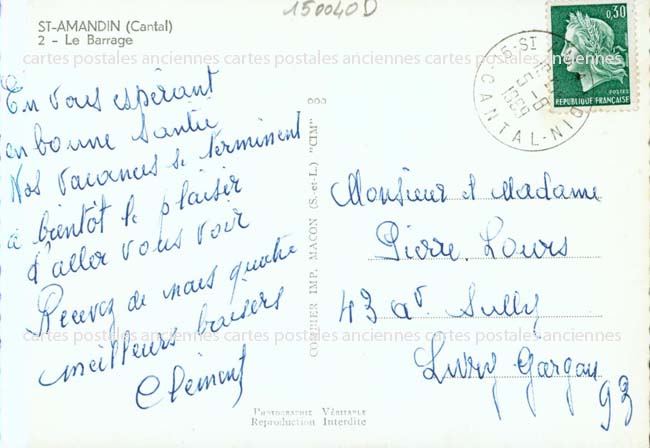 150040D
ST-AMANDIN (Cantal)
2 - Le Barrage
0,30
POSTES
REPUBLIQUE FRANÇAISE
CANTAL
1969
cartes postales anciennes cartes postales anciennes cartes postales anciennes
En vous espérant
en bonne santée
Nos vacances se terminent
à bientôt le plaisir
d'aller vous voir
Recevez de nous quatre
meilleurs baisers
Clément
COMBIER IMP. MACON (S.-et-L.) "CIM"
Monsieur et Madame
Pierre Lours
43 av. Sully
Livry Gargan
93
cartes postales anciennes cartes postales anciennes cartes postales anciennes
PHOTOGRAPHIE VÉRITABLE
Reproduction Interdite